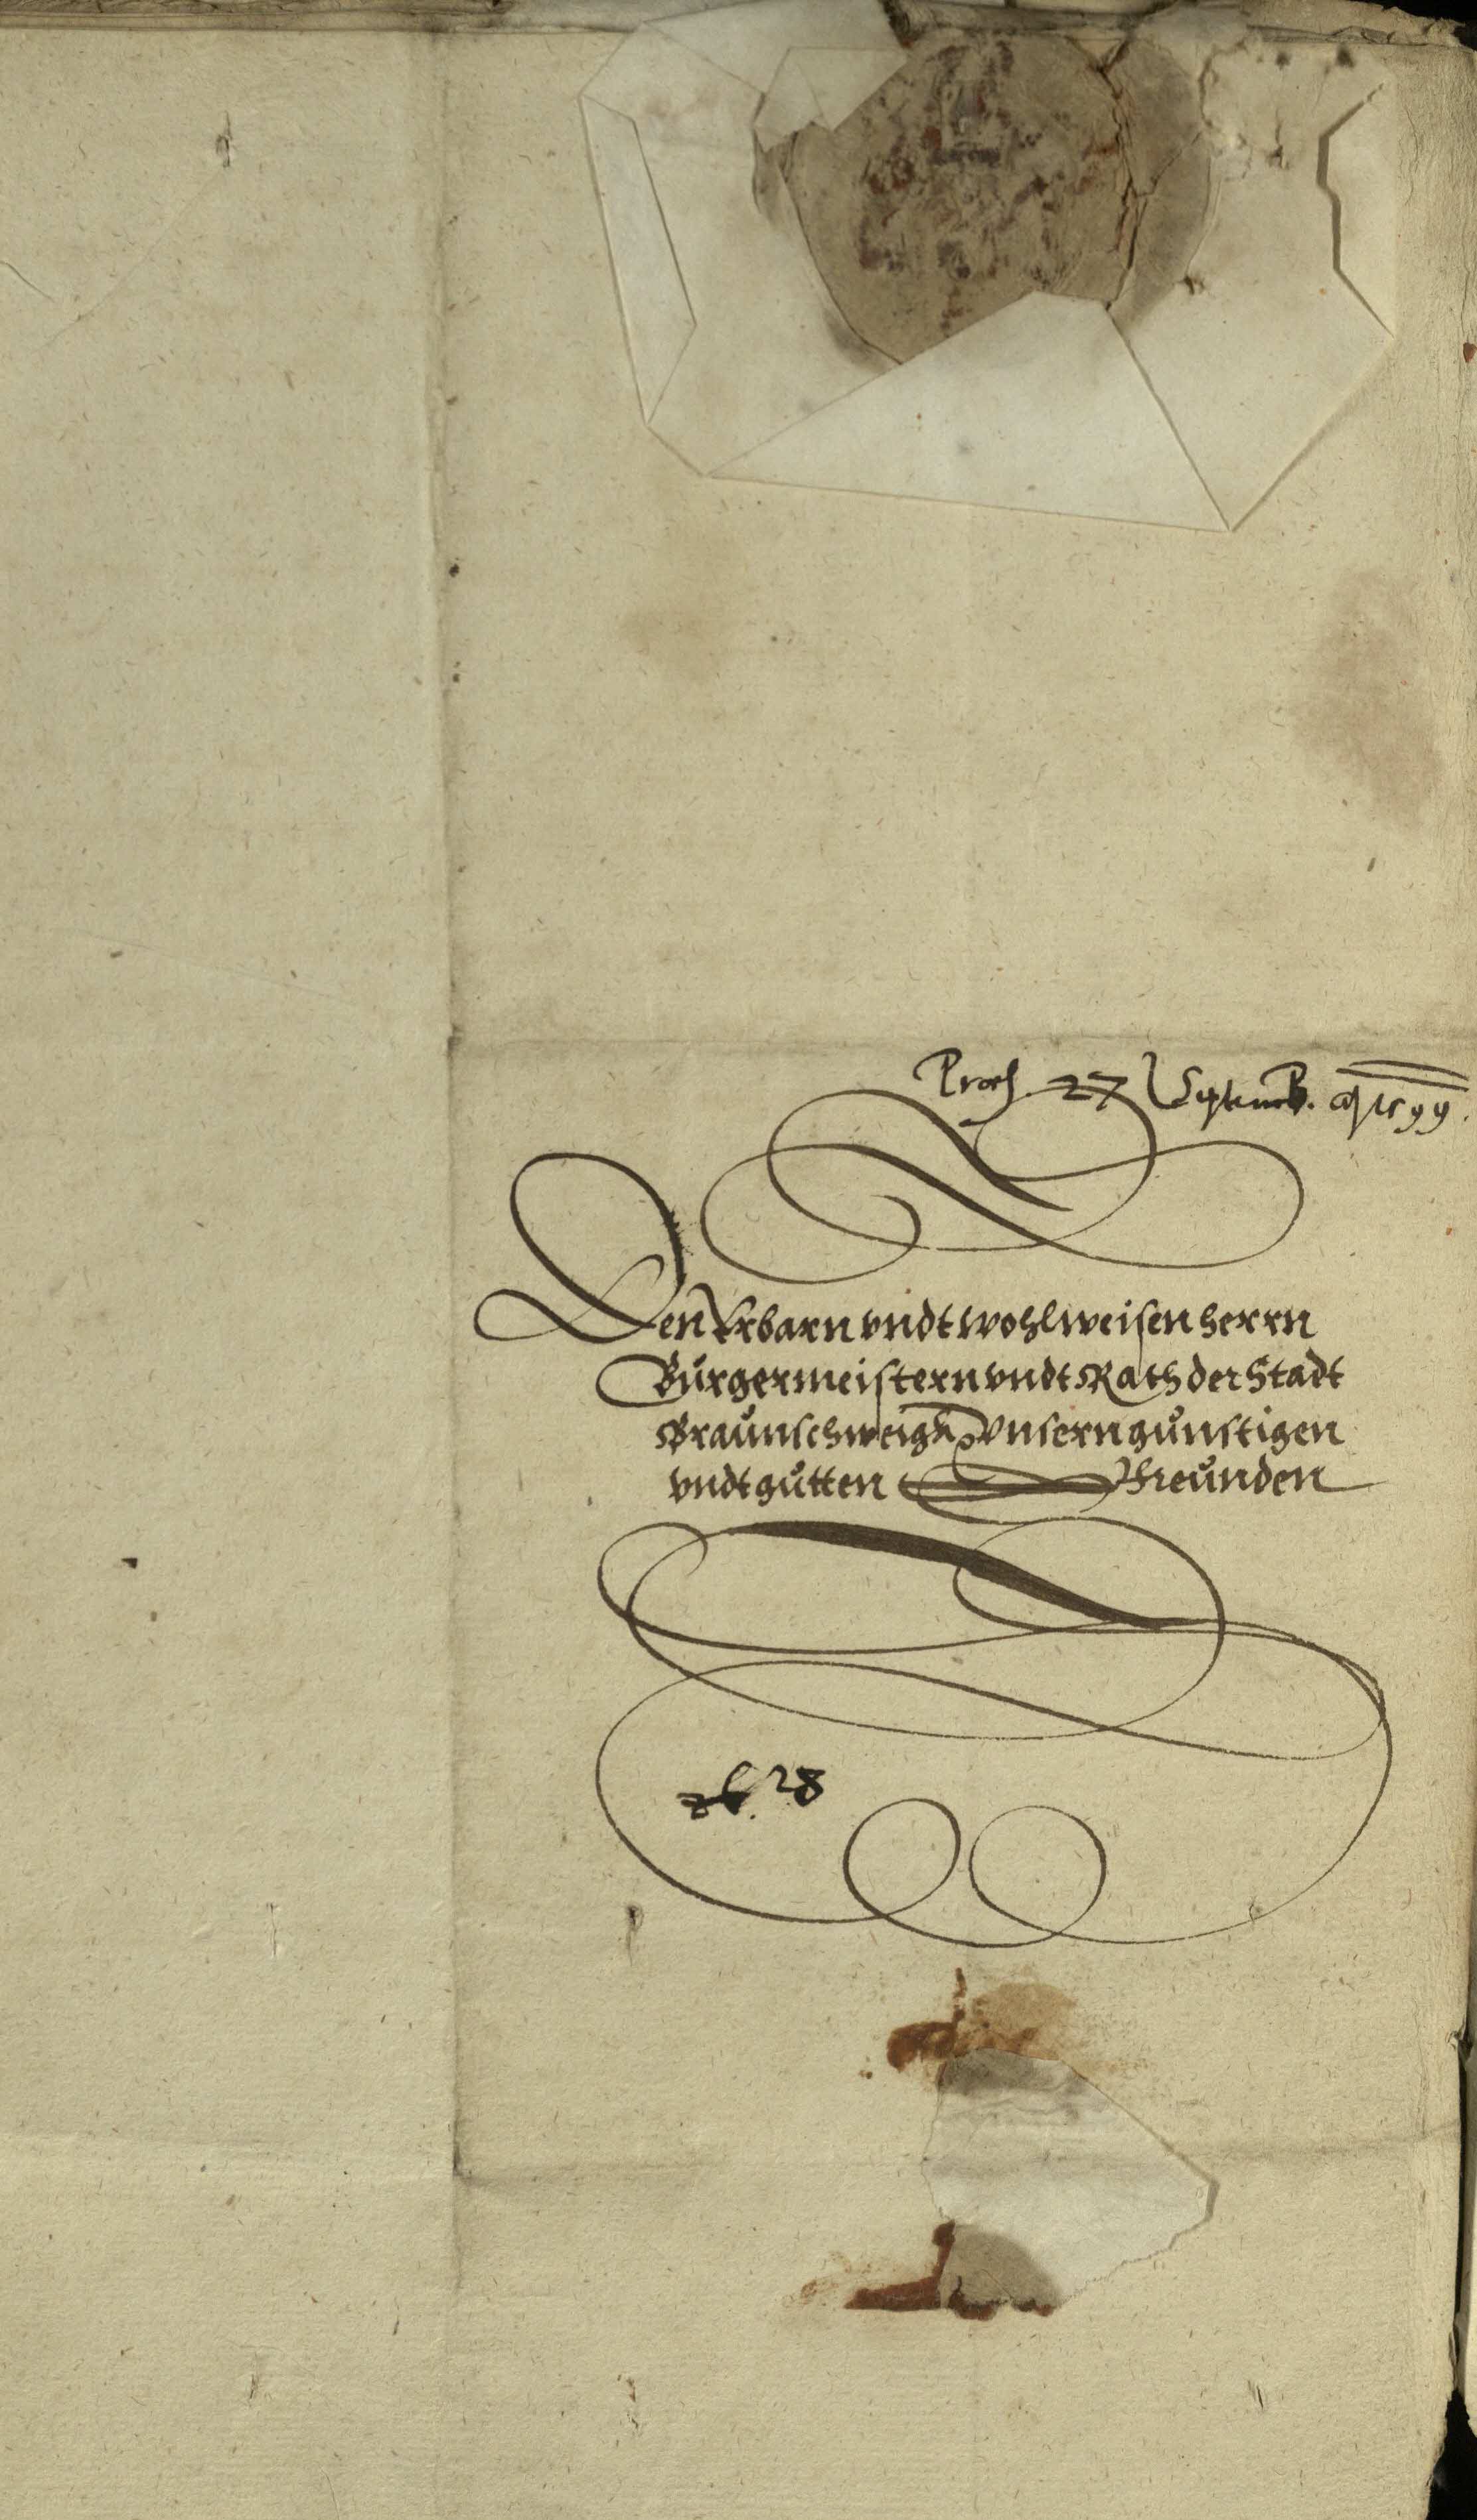 Præs. 27 Septemb. aȏ 1599.
Den Erbarn vndt wohlweisen herrn
Bürgermeistern vndt Rath der Stadt
Braunschweigk Vnsern günstigen
vndt gutten Freunden
28